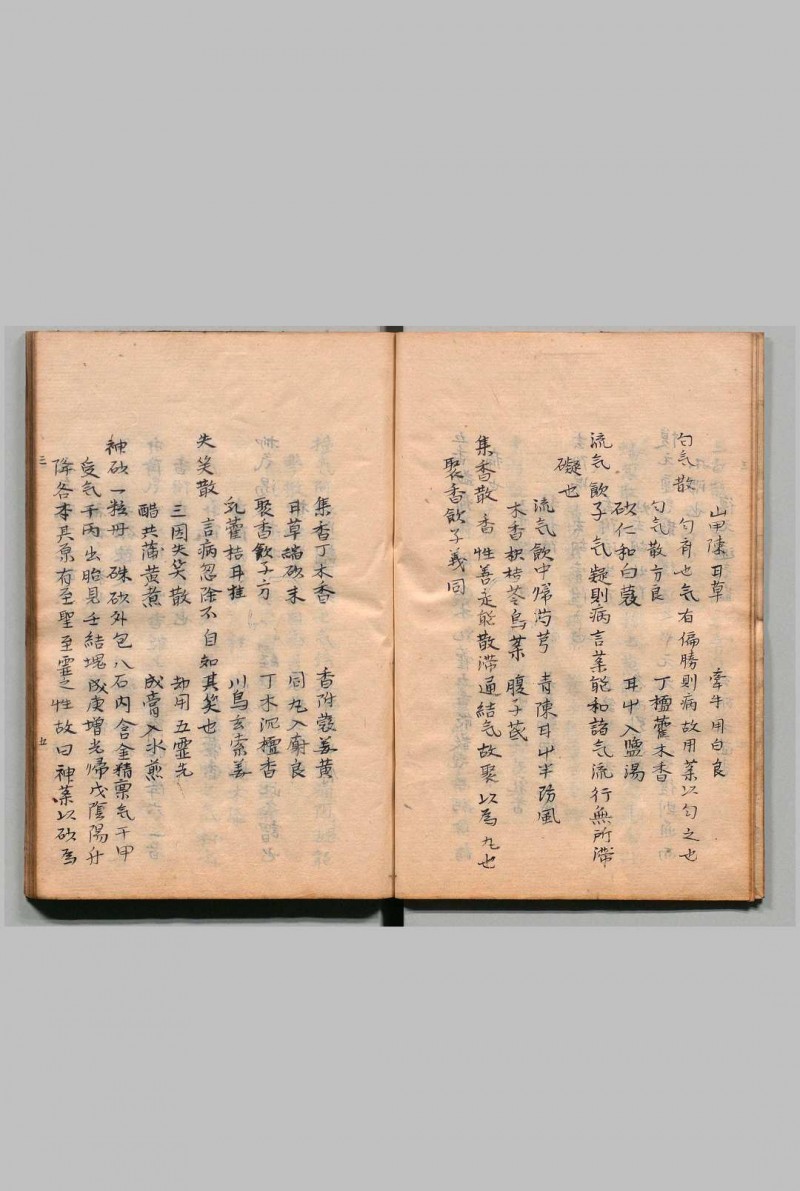 山甲陳耳草 牽牛用白良
勻气散 勻斉也气有偏勝則病故用薬以勻之也
勻气散方良 丁檀藿木香
砂仁和白蔲 耳屮入鹽湯
流气飲子 气凝則病言薬能和諸气流行無所滞
礙也
流气飲中帰芍芎 青陳耳屮半防風
木香枳桔苓烏薬 腹子芪
集香散 香性善走能散滞通結气故聚以為九也
聚香飲子義同
集香丁木香 香附蔲姜黄
耳草端砂末 同丸入廚良
聚香飲子方 丁木沉檀香
乳藿桔耳桂 川烏玄索姜
失笑散 言病忽除不自知其笑也
三因失笑散 却用五霊先
醋共蒲黄煮 成膏入水煎
神砂一粒丹 硃砂外包八石内含金精禀气于甲
受气于丙出胎見壬結塊成庚増光帰戊陰陽升
降各本其原有至聖至霊之性故曰神薬以砂為
三
五